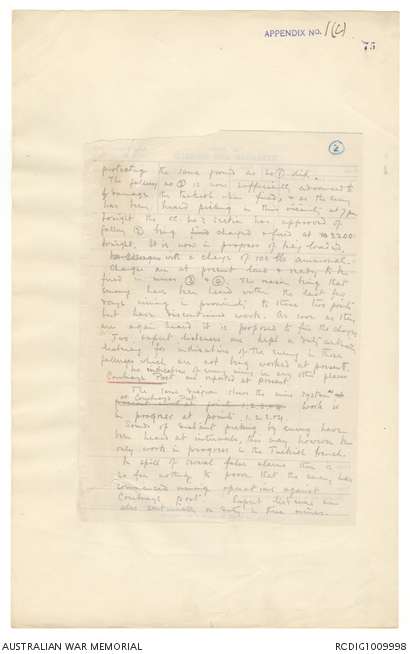 APPENDIX NO. 1(C)
75
2
protecting the same ground as No 1 did.
The gallery No 2 is now sufficiently advanced to
damage the Turkish when fired, & as the enemy
has been heard picking in this vicinity at 7 pm
tonight the has approved of
gallery 2 being charged & fired at 2200
tonight. It is now in progress of being loaded,
with a charge of 100 lbs ammonal.
Charges are at present laid & ready to be
fired in mines 3 & 4. The reason being that
enemy has been heard within the last two
days mining in proximity to these two points
but have discontinued work. As soon as they
are again heard it is proposed to fire the charges
Two expert listeners are kept on duty continually
listening for indications of the enemy in those
galleries which are not being worked at present.
No indications of enemy mining in any other places
Courtneys Post are reported at present.
The same diagram shows the mine system
at Courtneys Post. Work is
in progress at points
Sounds of distant picking by enemy have
been heard at intervals, this may however be
only work in progress in the Turkish trench.
In spite of several false alarms there is
so far nothing to prove that the enemy has
commenced mining operations against
Courtneys post. Expert listeners are
also continually on duty in these mines.
AUSTRALIAN WAR MEMORIAL
RCDIG1009998